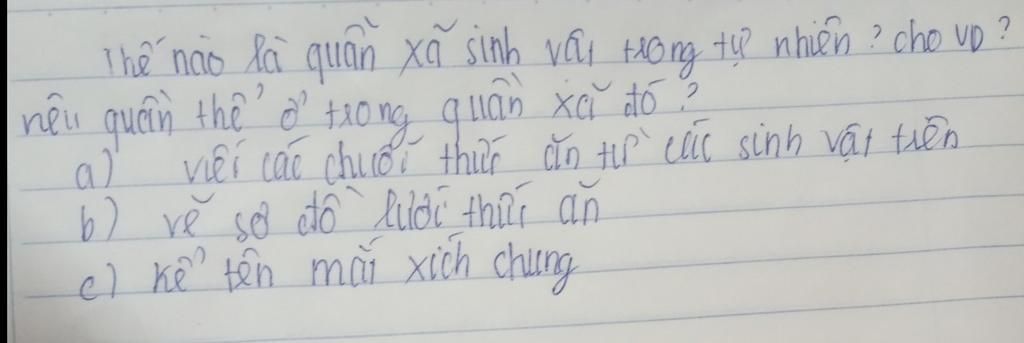 Thế nào là quần xã sinh vật trong tự nhiên? cho VD?
nêu quần thể ở trong quần xã đó?
a) viết các chuỗi thức ăn từ các sinh vật trên
b) vẽ sơ đồ lưới thức ăn
c) kể tên mắt xích chung